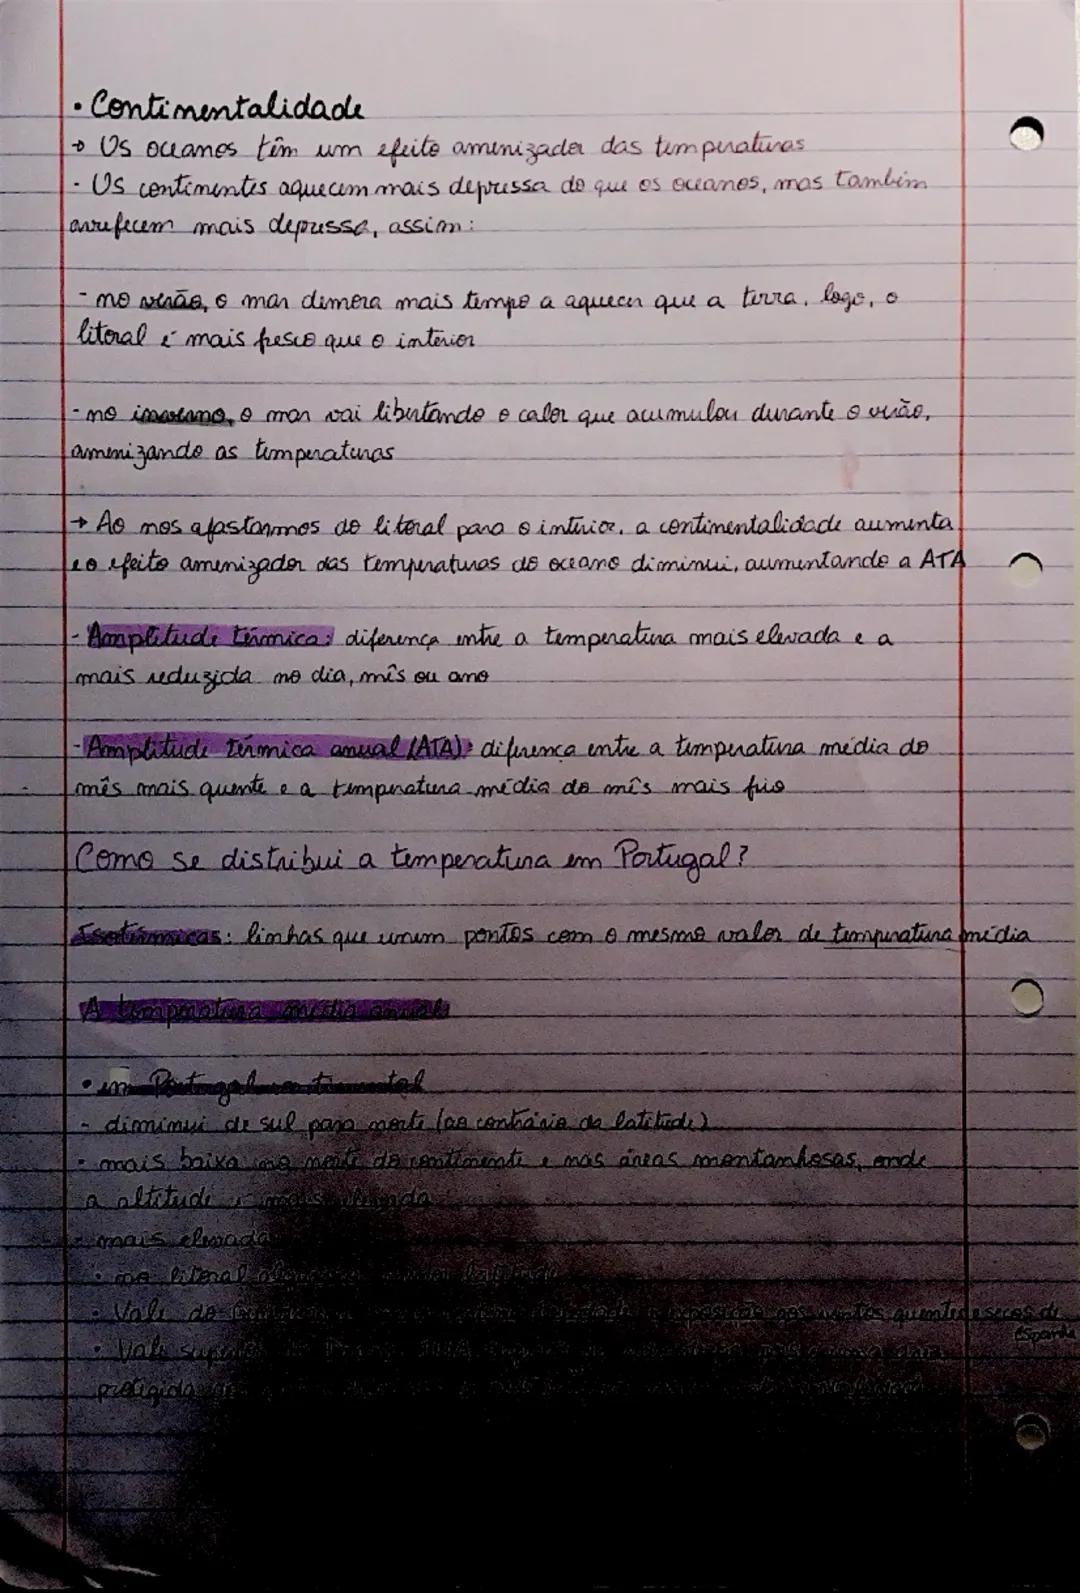 • Continentalidade
→ Os oceanos têm um efeito amenizador das temperaturas
- Os continentes aquecem mais depressa do que os oceanos, mas também
arrefecem mais depressa, assim:
- no verão, o mar demora mais tempo a aquecer que a terra, logo, o
litoral é mais fresco que o interior
- no inverno, o mar vai libertando o calor que acumulou durante o verão,
amenizando as temperaturas
→ Ao nos afastarmos do litoral para o interior, a continentalidade aumenta
e o efeito amenizador das temperaturas do oceano diminui, aumentando a ATA
- Amplitude térmica: diferença entre a temperatura mais elevada e a
mais reduzida no dia, mês ou ano
- Amplitude térmica anual (ATA): diferença entre a temperatura média do
mês mais quente e a temperatura média do mês mais frio
Como se distribui a temperatura em Portugal?
Isotérmicas: linhas que unem pontos com o mesmo valor de temperatura média
A temperatura média anual:
• em Portugal continental
- diminui de sul para norte (ao contrário da latitude)
- mais baixa no norte do continente e nas áreas montanhosas, onde
a altitude é mais elevada
- mais elevada
• no litoral
• Vale do exposição aos ventos quentes e secos de
Espanha
• Vale superior do
protegida